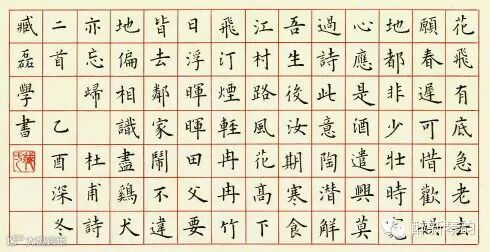 花飛有底急老
願春遲可惜歡
地都非少壯時
心應是酒遣興莫
過詩此意陶潛解
吾生後汝期寒食
江村路風花高下
飛汀煙輕冉冉竹
日浮暉暉田父要
皆去鄰家鬧不違
地偏相識盡鷄犬
亦忘歸 杜甫詩
二首 乙酉深冬
臧磊學書